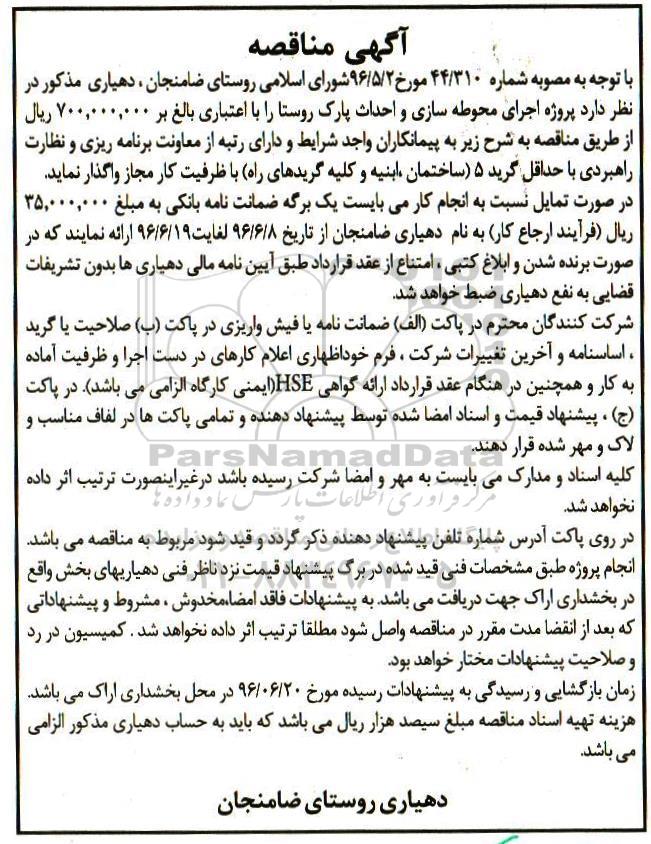 آگهی مناقصه
با توجه به مصوبه شماره ۴۴/۳۱۰ مورخ۹۶/۵/۲شورای اسلامی روستای ضامنجان ، دهیاری مذکور در
نظر دارد پروژه اجرای محوطه سازی و احداث پارک روستا را با اعتباری بالغ بر ۷۰۰,۰۰۰,۰۰۰ ریال
از طریق مناقصه به شرح زیر به پیمانکاران واجد شرایط و دارای رتبه از معاونت برنامه ریزی و نظارت
راهبردی با حداقل گرید ۵ (ساختمان ،ابنیه و کلیه گریدهای راه) با ظرفیت کار مجاز واگذار نماید.
در صورت تمایل نسبت به انجام کار می بایست یک برگه ضمانت نامه بانکی به مبلغ ۳۵,۰۰۰,۰۰۰
ریال (فرآیند ارجاع کار) به نام دهیاری ضامنجان از تاریخ ۹۶/۶/۸ لغایت۹۶/۶/۱۹ ارائه نمایند که در
صورت برنده شدن و ابلاغ کتبی ، امتناع از عقد قرارداد طبق آیین نامه مالی دهیاری ها بدون تشریفات
قضایی به نفع دهیاری ضبط خواهد شد.
شرکت کنندگان محترم در پاکت (الف) ضمانت نامه یا فیش واریزی در پاکت (ب) صلاحیت یا گرید
، اساسنامه و آخرین تغییرات شرکت ، فرم خوداظهاری اعلام کارهای در دست اجرا و ظرفیت آماده
به کار و همچنین در هنگام عقد قرارداد ارائه گواهی HSE(ایمنی کارگاه الزامی می باشد). در پاکت
(ج) ، پیشنهاد قیمت و اسناد امضا شده توسط پیشنهاد دهنده و تمامی پاکت ها در لفاف مناسب و
لاک و مهر شده قرار دهند.
ParsNamadData
کلیه اسناد و مدارک می بایست به مهر و امضا شرکت رسیده باشد درغیراینصورت ترتیب اثر داده
مرکز فرآوری اطلاعات پارس نماد داده ها
نخواهد شد.
در روی پاکت آدرس شماره تلفن پیشنهاد دهنده ذکر گردد و قید شود مربوط به مناقصه می باشد.
انجام پروژه طبق مشخصات فنی قید شده در برگ پیشنهاد قیمت نزد ناظر فنی دهیاریهای بخش واقع
در بخشداری اراک جهت دریافت می باشد. به پیشنهادات فاقد امضا،مخدوش ، مشروط و پیشنهاداتی
که بعد از انقضا مدت مقرر در مناقصه واصل شود مطلقا ترتیب اثر داده نخواهد شد . کمیسیون در رد
و صلاحیت پیشنهادات مختار خواهد بود.
زمان بازگشایی و رسیدگی به پیشنهادات رسیده مورخ ۹۶/۰۶/۲۰ در محل بخشداری اراک می باشد.
هزینه تهیه اسناد مناقصه مبلغ سیصد هزار ریال می باشد که باید به حساب دهیاری مذکور الزامی
می باشد.
دهیاری روستای ضامنجان